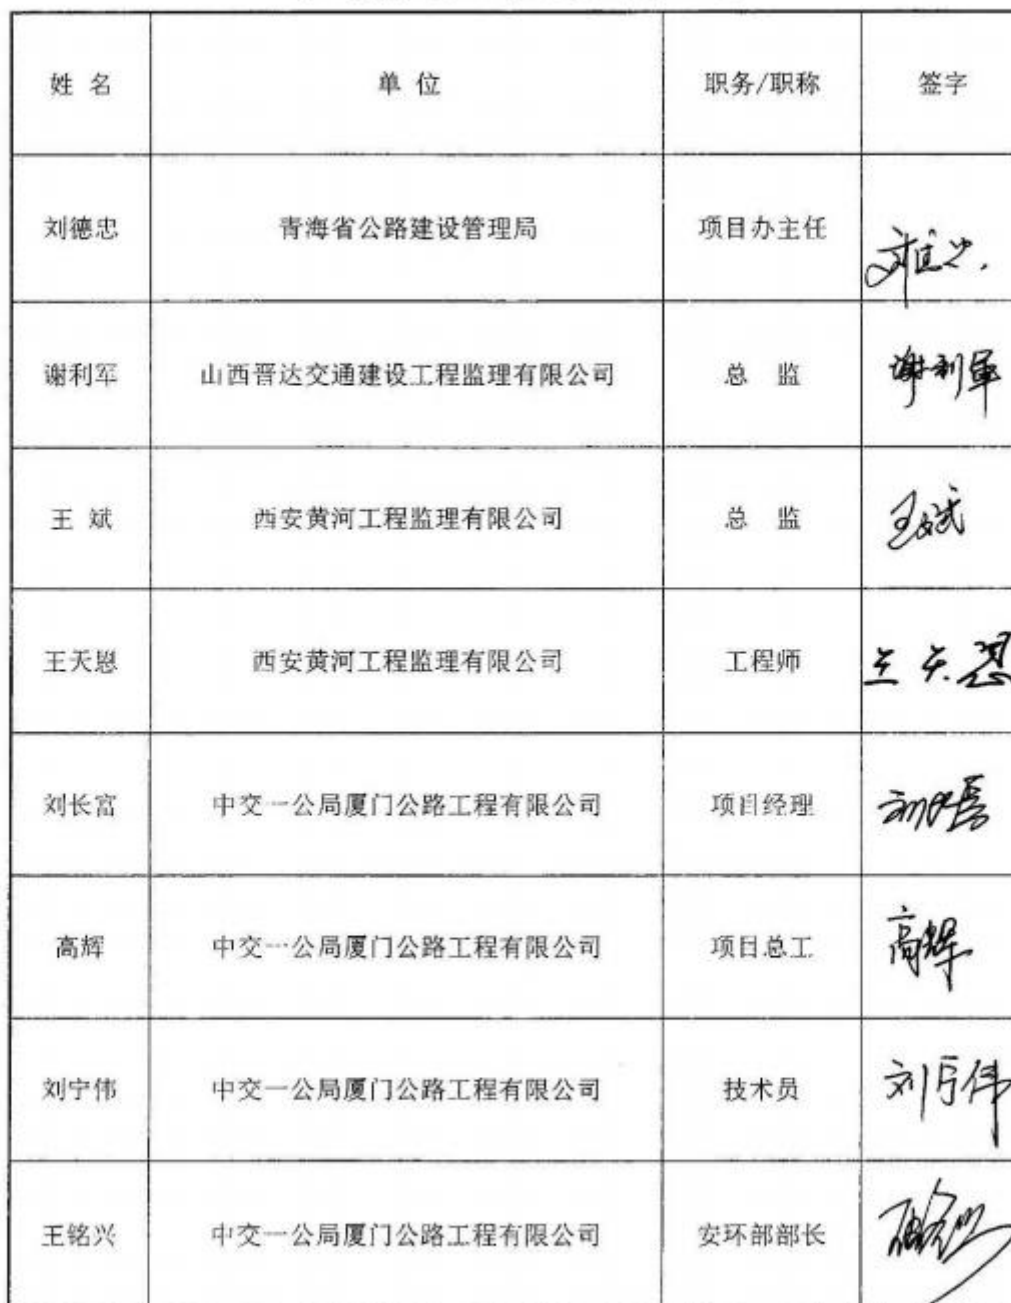 姓 名 单 位 职务/职称 签字
刘德忠 青海省公路建设管理局 项目办主任
谢利军 山西晋达交通建设工程监理有限公司 总 监 谢利军
王 斌 西安黄河工程监理有限公司 总 监 王斌
王天恩 西安黄河工程监理有限公司 工程师 王天恩
刘长富 中交一公局厦门公路工程有限公司 项目经理
高辉 中交一公局厦门公路工程有限公司 项目总工 高辉
刘宁伟 中交一公局厦门公路工程有限公司 技术员 刘宁伟
王铭兴 中交一公局厦门公路工程有限公司 安环部部长